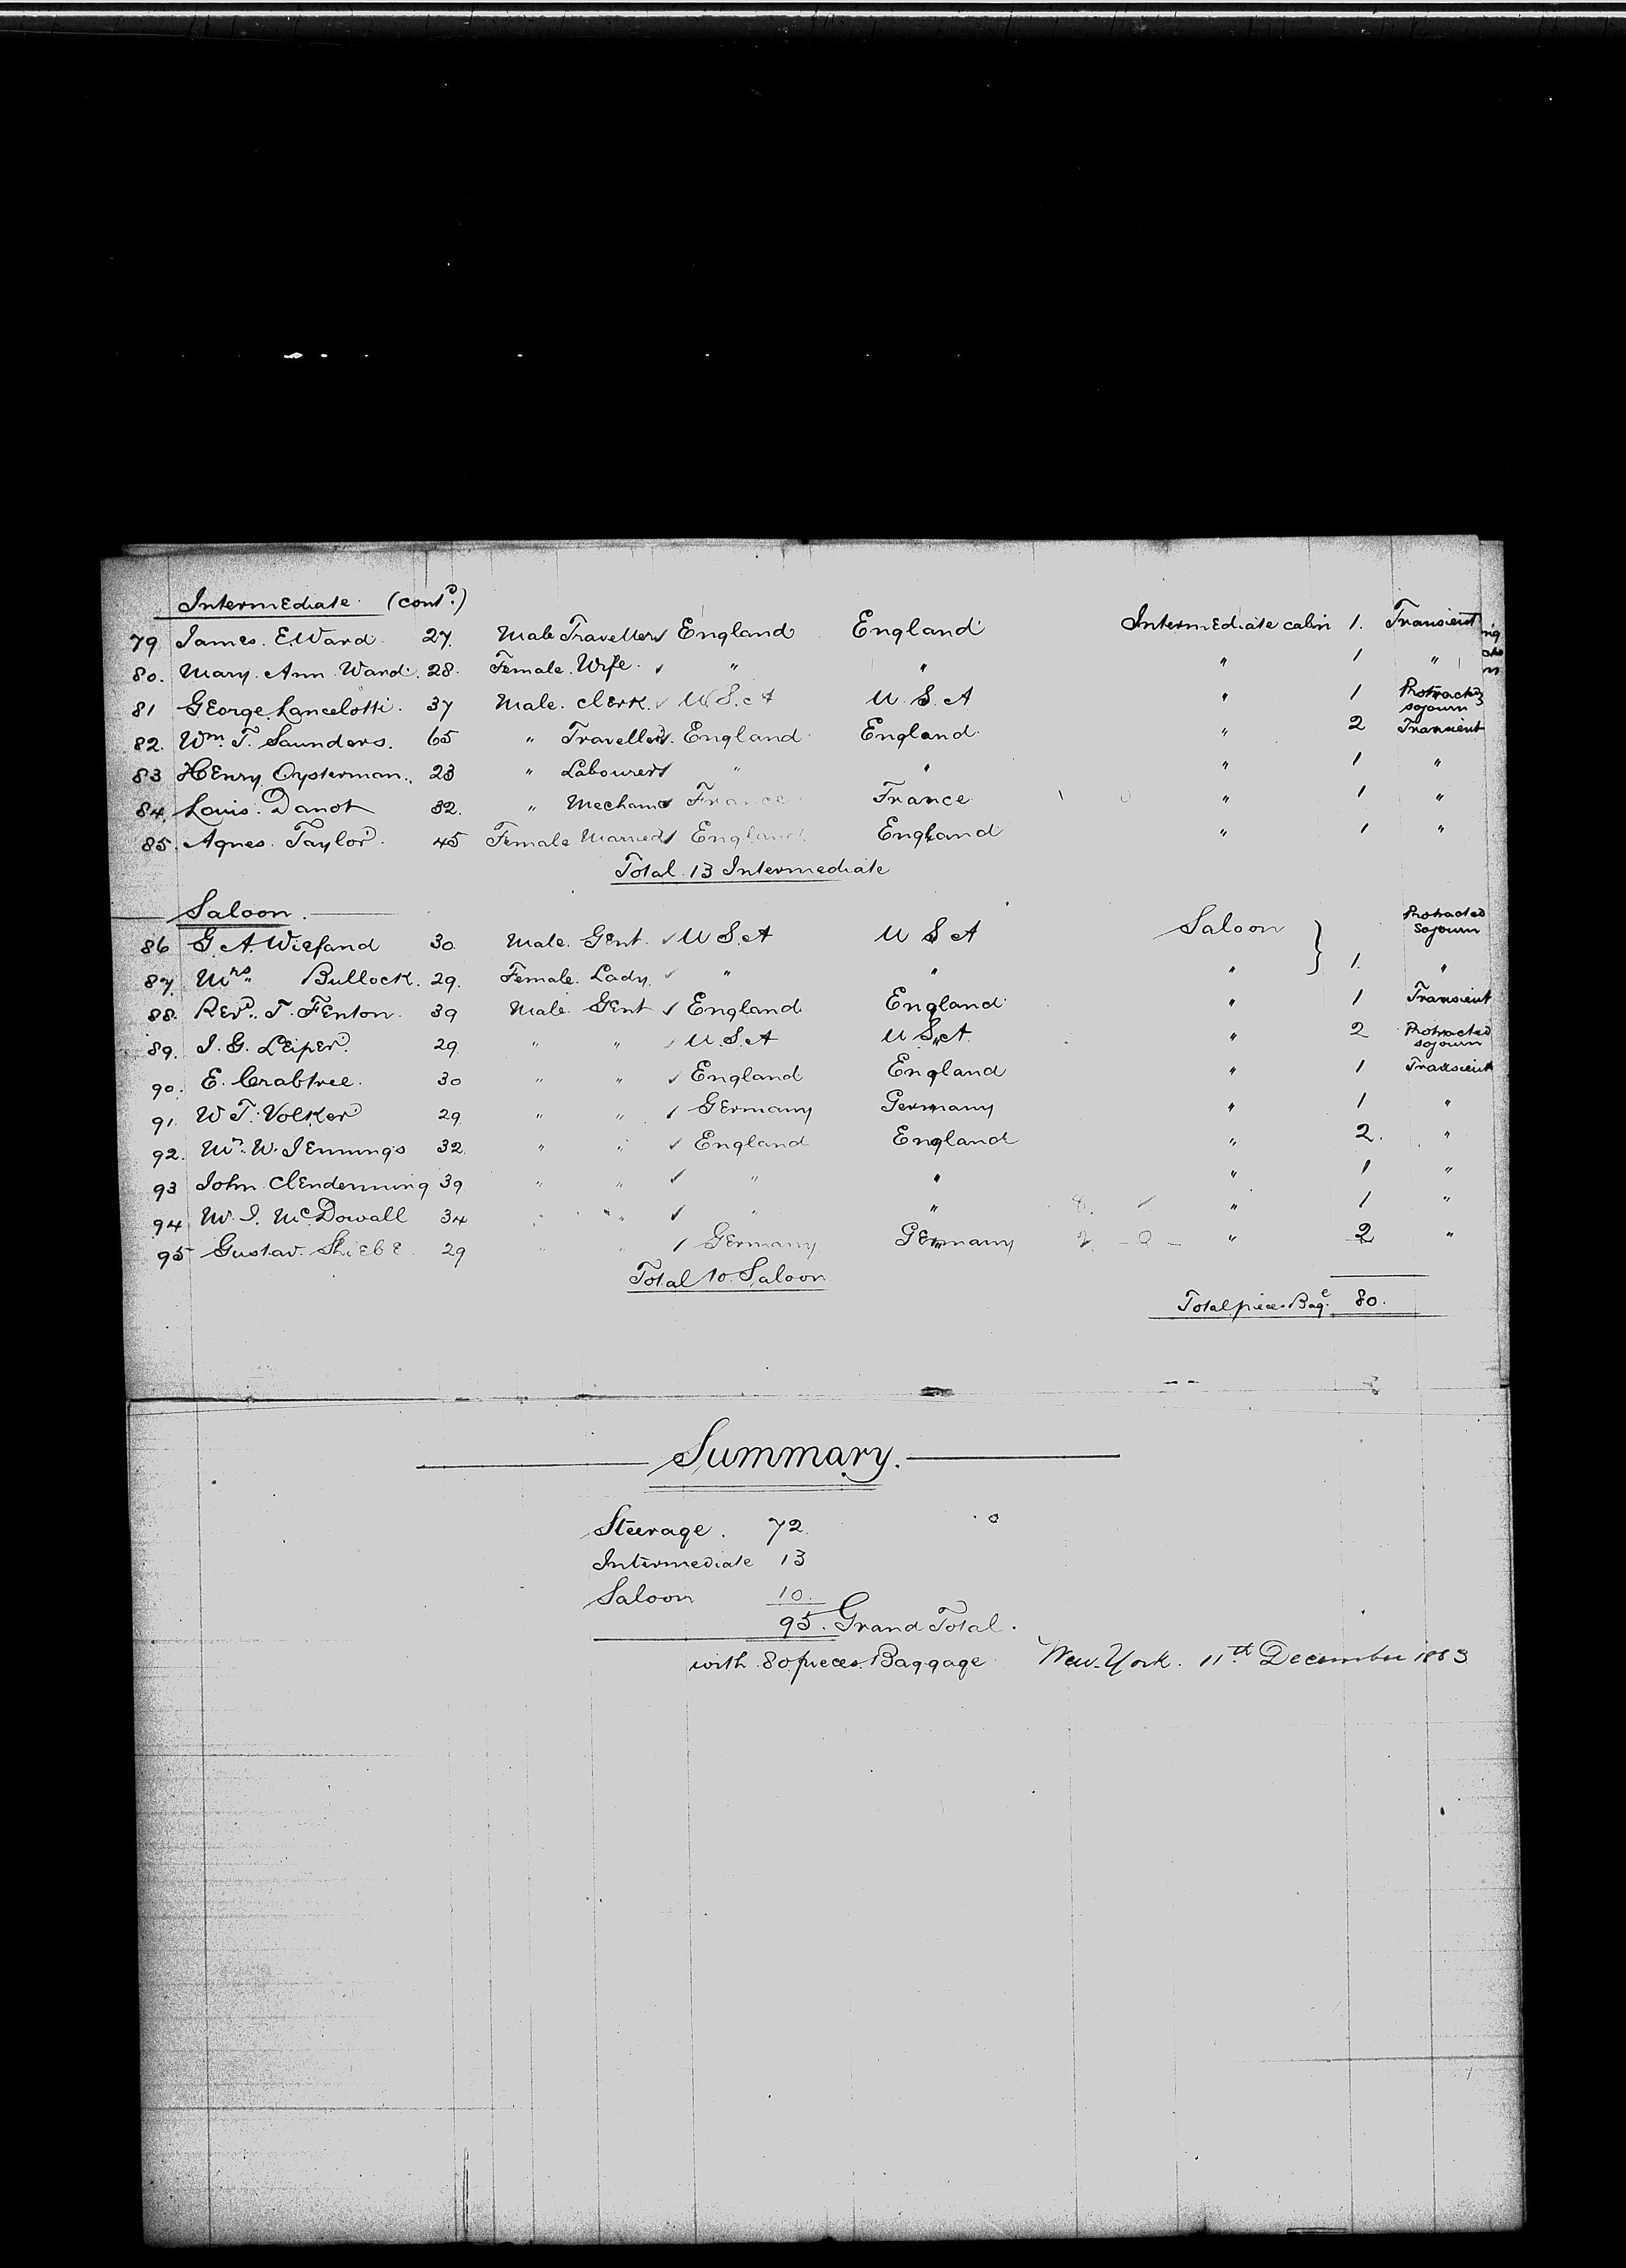 Intermediate (cont.d)
79 James. E. Ward 27. Male Traveller England England Intermediate cabin 1. Transient
80. Mary. Ann Ward. 28. Female. Wife. " " " 1 "
81 George. Lancelotti. 37 Male. Clerk. U.S.A U.S.A " 1 Protracted sojourn
82. Wm. T. Saunders. 65 " Traveller. England England " 2 Transient
83 Henry Oysterman. 23 " Labourer " " " 1 "
84. Louis. Danot 32. " Mechanic France France " 1 "
85. Agnes. Taylor. 45 Female Married England England " 1 "
Total 13 Intermediate
Saloon.
86 G. A. Wiefand 30 Male. Gent. U.S.A U S A Saloon } Protracted Sojourn
87. Mrs. Bullock. 29. Female. Lady " " " 1. "
88. Revd. T. Fenton. 39 Male Gent England England " 1 Transient
89. J. G. Leiper. 29 " " U.S.A U.S.A. " 2 Protracted sojourn
90. E. Crabtree. 30 " " England England " 1 Transient
91. W T. Volker 29 " " Germany Germany " 1 "
92. Mr. W. Jennings 32. " " England England " 2. "
93 John Clendenning 39 " " " " " 1 "
94 W. J. McDowall 34 " " " " " 1 "
95 Gustav. 29 " " Germany Germany " 2 "
Total 10. Saloon
Total pieces Bage. 80.
Summary.
Steerage. 72.
Intermediate 13
Saloon 10.
95. Grand Total.
with 80 pieces Baggage New-York. 11th December 1883